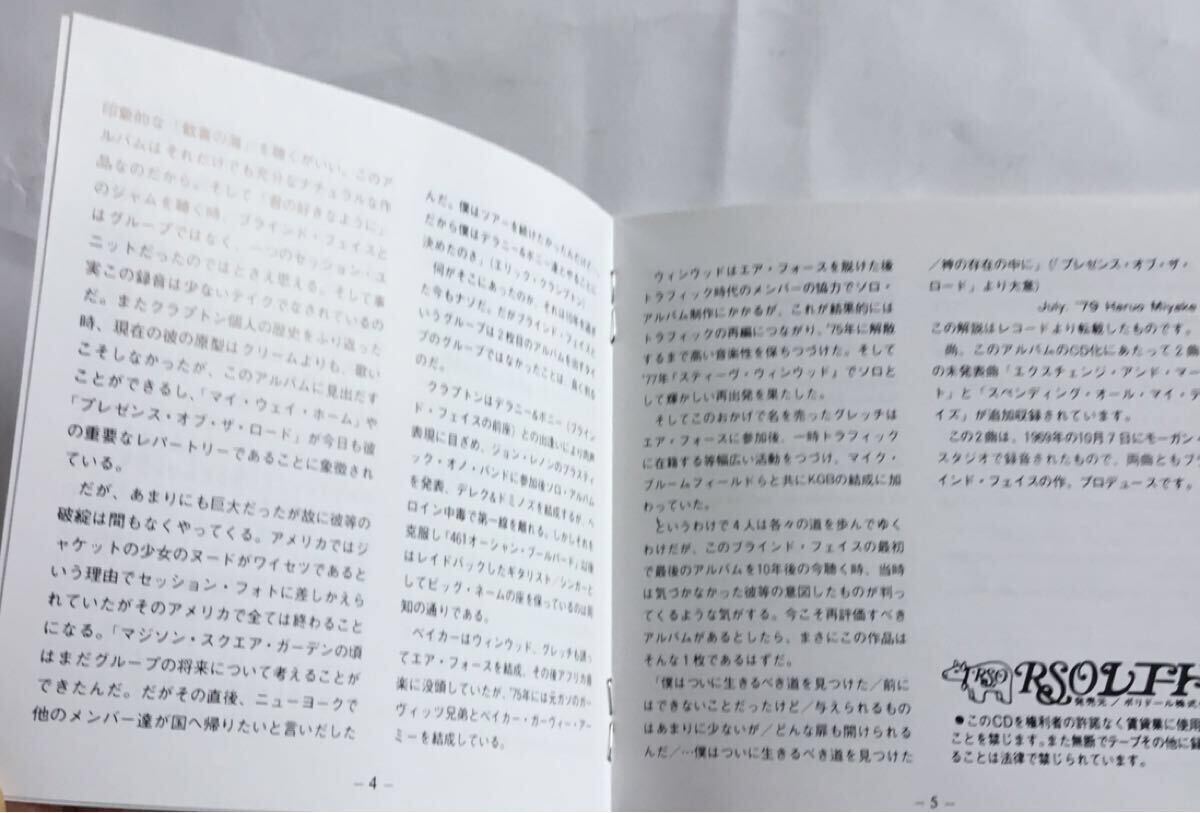 印象的な「歓喜の海」を聴くがいい。このア
ルバムはそれだけでも充分なナチュラルな作
品なのだから。そして「君の好きなように」
のジャムを聴く時、ブラインド・フェイスと
はグループではなく、一つのセッション・ユ
ニットだったのではとさえ思える。そして事
実この録音は少ないテイクでなされているの
だ。またクラプトン個人の歴史をふり返った
時、現在の彼の原型はクリームよりも、歌い
こそしなかったが、このアルバムに見出だす
ことができるし、「マイ・ウェイ・ホーム」や
「プレゼンス・オブ・ザ・ロード」が今日も彼
の重要なレパートリーであることに象徴され
ている。
だが、あまりにも巨大だったが故に彼等の
破綻は間もなくやってくる。アメリカではジ
ャケットの少女のヌードがワイセツであると
いう理由でセッション・フォトに差しかえら
れていたがそのアメリカで全ては終わること
になる。「マジソン・スクエア・ガーデンの頃
はまだグループの将来について考えることが
できたんだ。だがその直後、ニューヨークで
他のメンバー達が国へ帰りたいと言いだした
んだ。僕はツアーを続けたかったんだけど、
だから僕はデラニー&ボニー達とやることに
決めたのさ」(エリック・クラプトン)
何がそこにあったのか、それは10年を過ぎ
た今もナゾだ。だがブラインド・フェイスと
いうグループは2枚目のアルバムを出すタイ
プのグループではなかったことは、良く判る
のだ。
クラプトンはデラニー&ボニー(ブライン
ド・フェイスの前座)との出逢いにより
表現に目ざめ、ジョン・レノンのプラスティ
ック・オノ・バンドに参加後ソロ・アルバム
を発表、デレク&ドミノズを結成するが、ヘ
ロイン中毒で第一線を離れる。しかしそれを
克服し「461オーシャン・ブールバード」以後
はレイドバックしたギタリスト/シンガーと
してビッグ・ネームの座を保っているのは周
知の通りである。
ベイカーはウィンウッド、グレッチも誘っ
てエア・フォースを結成、その後アフリカ音
楽に没頭していたが、'75年には元ガンのガー
ヴィッツ兄弟とベイカー・ガーヴィー・アー
ミーを結成している。
– 4 –
ウィンウッドはエア・フォースを脱けた後
トラフィック時代のメンバーの協力でソロ・
アルバム制作にかかるが、これが結果的には
トラフィックの再編につながり、'75年に解散
するまで高い音楽性を保ちつづけた。そして
'77年「スティーヴ・ウィンウッド」でソロと
して輝かしい再出発を果たした。
そしてこのおかげで名を売ったグレッチは
エア・フォースに参加後、一時トラフィック
に在籍する等幅広い活動をつづけ、マイク・
ブルームフィールドらと共にKGBの結成に加
わっていた。
というわけで4人は各々の道を歩んでゆく
わけだが、このブラインド・フェイスの最初
で最後のアルバムを10年後の今聴く時、当時
は気づかなかった彼等の意図したものが判っ
てくるような気がする。今こそ再評価すべき
アルバムがあるとしたら、まさにこの作品は
そんな1枚であるはずだ。
「僕はついに生きるべき道を見つけた/前に
はできないことだったけど/与えられるもの
はあまりに少ないが/どんな扉も開けられる
んだ/…僕はついに生きるべき道を見つけた
/神の存在の中に」(「プレゼンス・オブ・ザ・
ロード」より大意)
July, '79 Haruo Miyake
この解説はレコードより転載したものです。
尚、このアルバムのCD化にあたって2曲
の未発表曲「エクスチェンジ・アンド・マー
ト」と「スペンディング・オール・マイ・デ
イズ」が追加収録されています。
この2曲は、1969年の10月7日にモーガン・
スタジオで録音されたもので、両曲ともブラ
インド・フェイスの作、プロデュースです。
RSO RSOレコード
発売元/ポリドール株式
●このCDを権利者の許諾なく賃貸業に使用
ことを禁じます。また無断でテープその他に録
ることは法律で禁じられています。
– 5 –